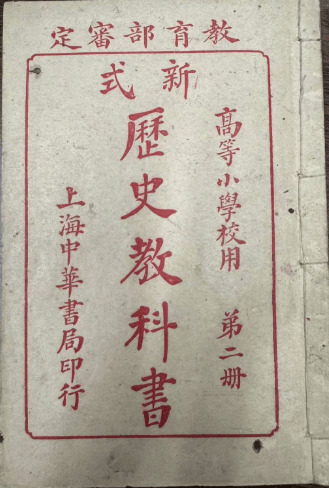 教育部審定
新式
高等小學校用 第二册
歷史教科書
上海中華書局印行